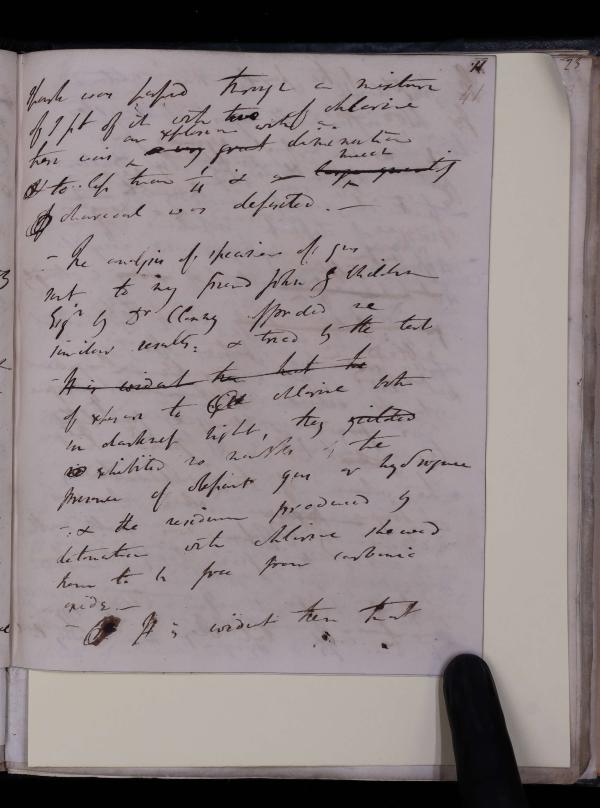 11
23
41
spark was passed through a mixture
of 1 pt of it with two of chlorine
there was an explosion with a very great diminution
& to less than 1/4 & a large quantity much
of charcoal was deposited. —
— The analysis of specimens of gas
sent to my friend John G Children
Esqr by Dr Clanny afforded me
similar results; & tried by the test
It is evident then that the
of exposure to chlorine both
in darkness & light, they yielded
exhibited no marks of the
presence of olefiant gas or hydrogene
— & the residuum produced by
detonation with chlorine shewed
them to be free from carbonic
oxide. —
— It is evident then that